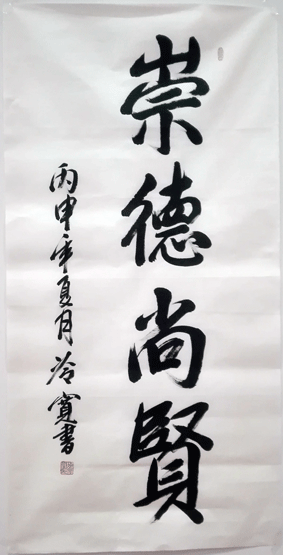 崇德尚賢
丙申年夏月冷寬書